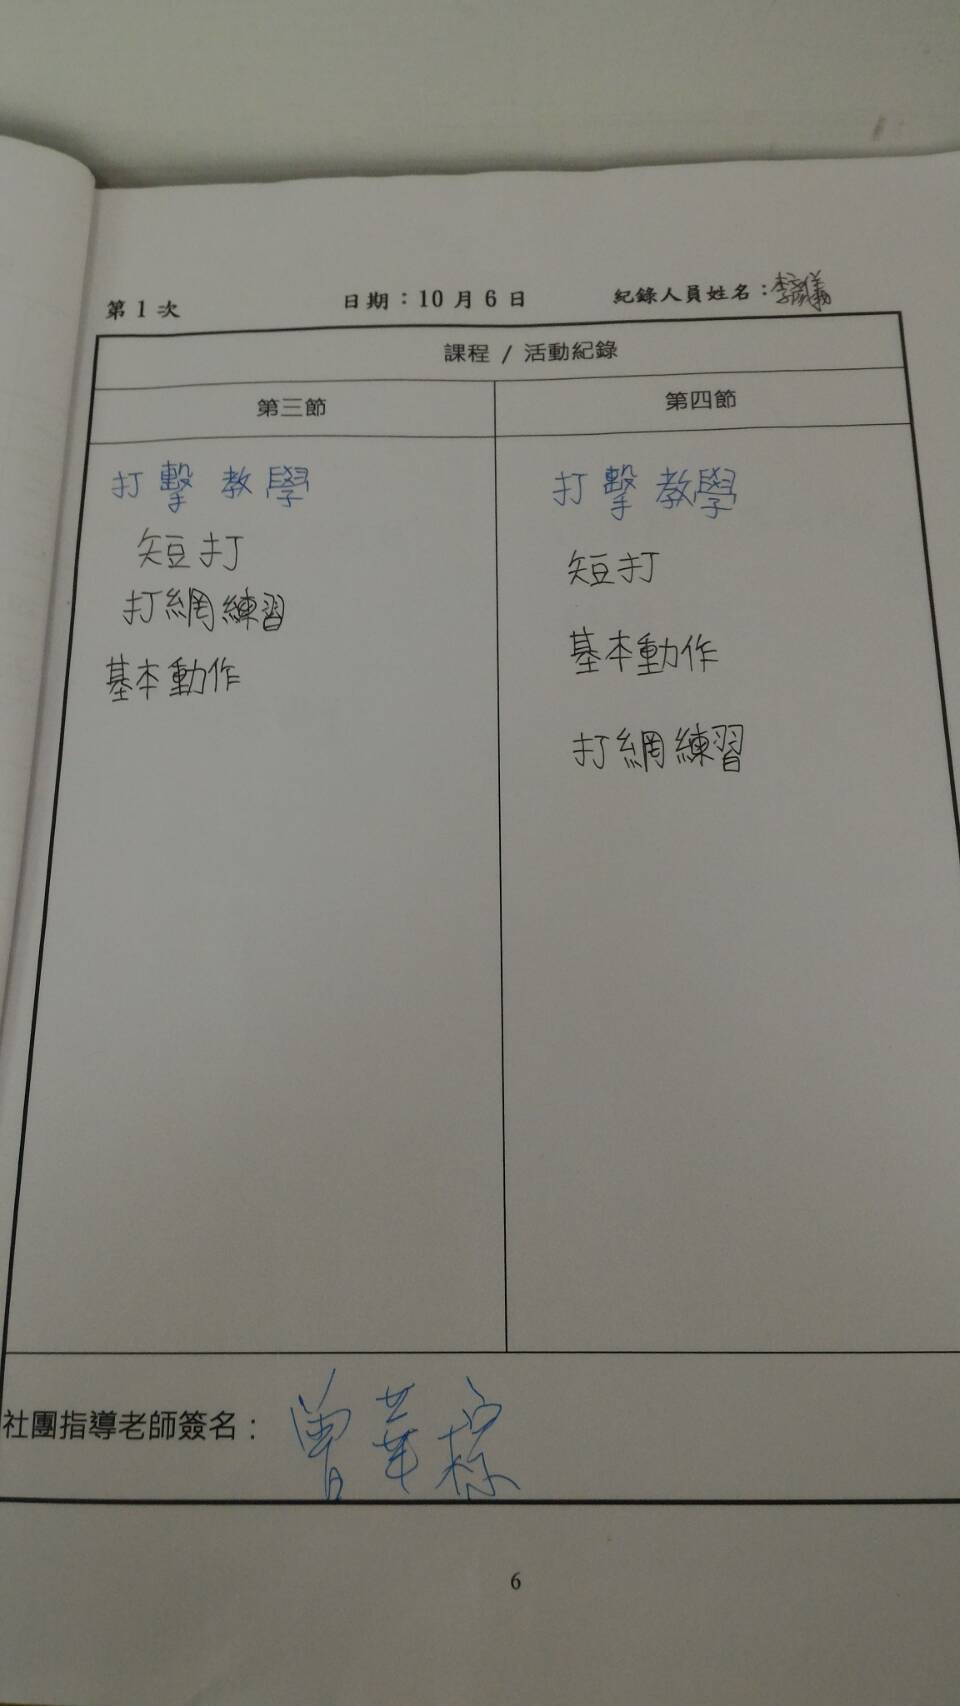 第 1 次 日期：10 月 6 日 紀錄人員姓名：李彥儀
課程 / 活動紀錄
第三節 第四節
打擊教學
短打
打網練習
基本動作
打擊教學
短打
基本動作
打網練習
社團指導老師簽名：曾華
6